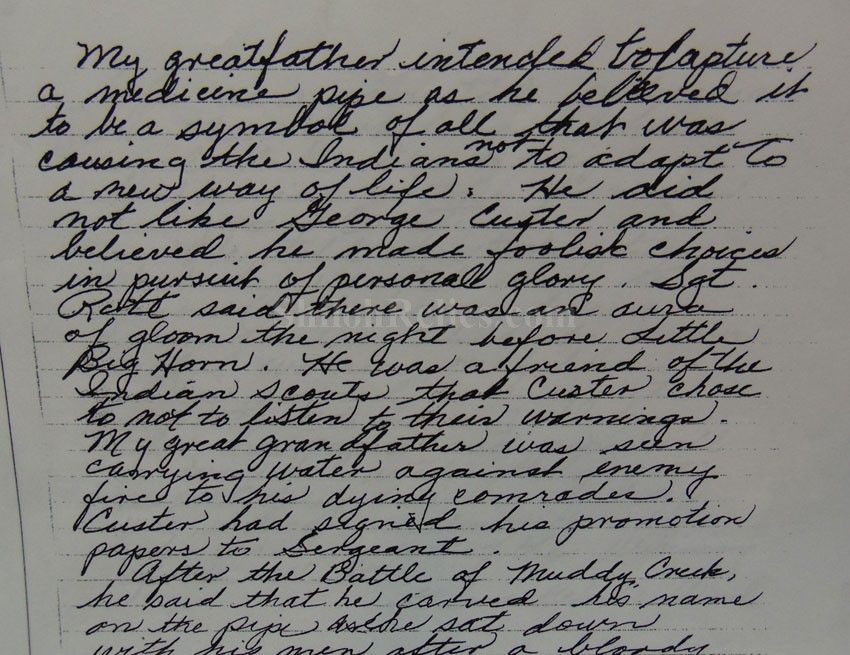 My greatfather intended to capture
a medicine pipe as he believed it
to be a symbol of all that was
causing the Indians not to adapt to
a new way of life. He did
not like George Custer and
believed he made foolish choices
in pursuit of personal glory. Sgt.
Rott said there was an aura
of gloom the night before Little
Big Horn. He was a friend of the
Indian scouts that Custer chose
to not to listen to their warnings.
My great grandfather was seen
carrying water against enemy
fire to his dying comrades.
Custer had signed his promotion
papers to Sergeant.
After the Battle of Muddy Creek,
he said that he carved his name
on the pipe as he sat down
with his men after a bloody